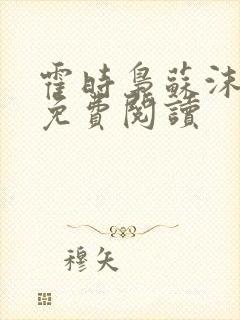 霍時梟蘇沫
免費閱讀
穆矢